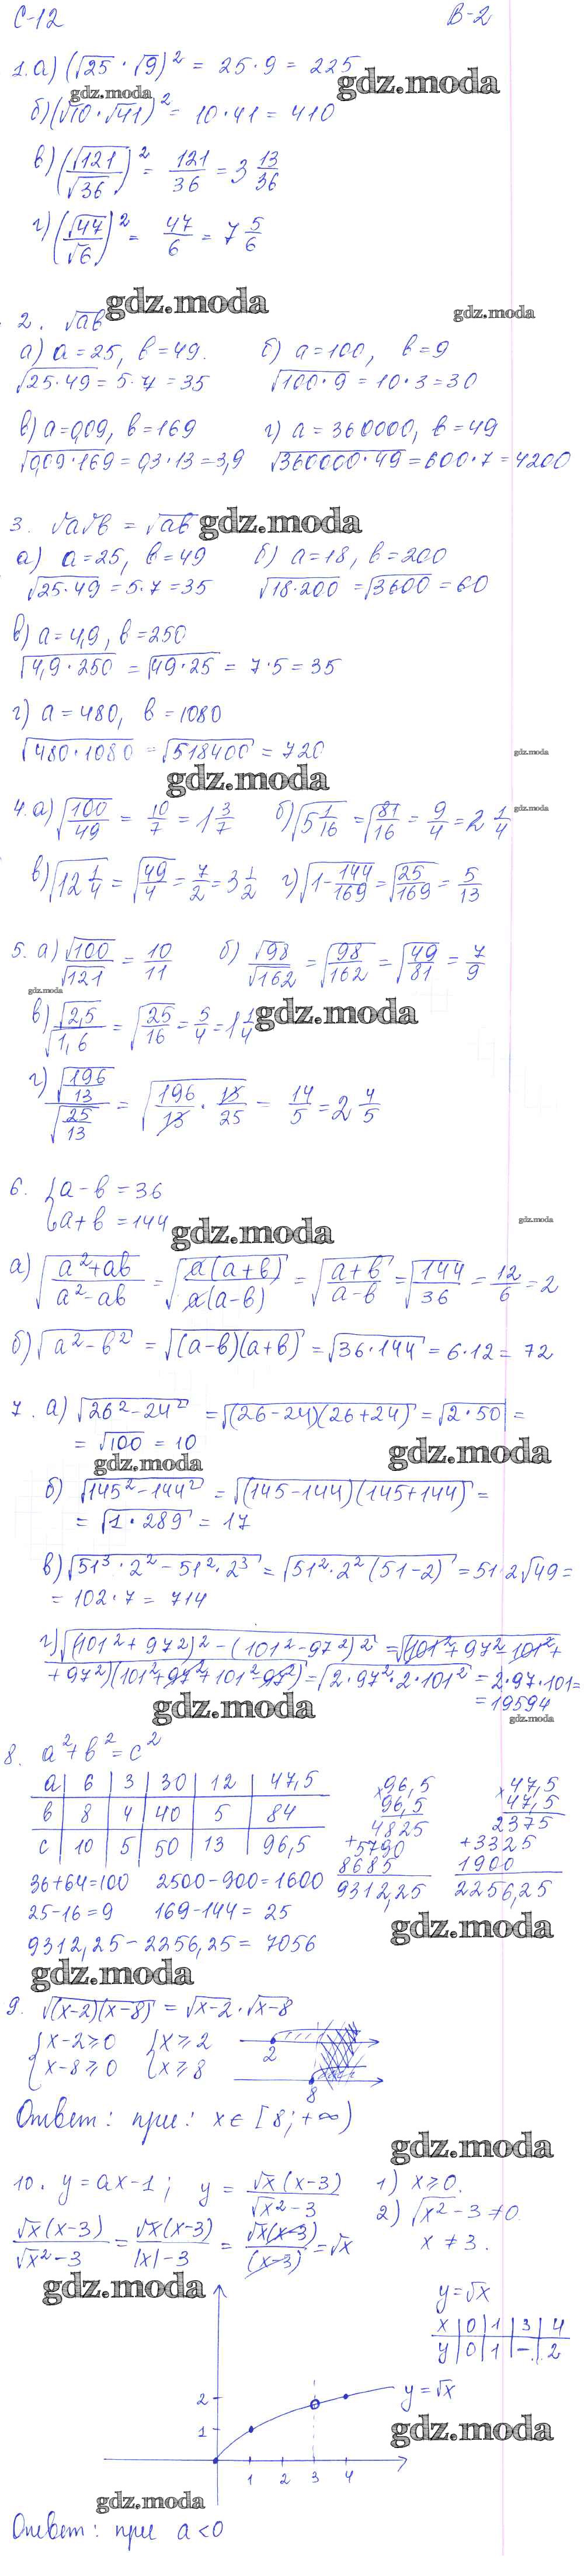 С-12 В-2
1. а) (√25 · √9)² = 25·9 = 225
gdz.moda
gdz.moda
б) (√10 · √41)² = 10·41 = 410
в) (√121/√36)² = 121/36 = 3 13/36
г) (√47/√6)² = 47/6 = 7 5/6
gdz.moda
2. √ab
gdz.moda
а) a = 25, b = 49. б) a = 100, b = 9
√25·49 = 5·7 = 35 √100·9 = 10·3 = 30
в) a = 0,09, b = 169 г) a = 360000, b = 49
√0,09·169 = 0,3·13 = 3,9 √360000·49 = 600·7 = 4200
3. √a√b = √ab gdz.moda
а) a = 25, b = 49 б) a = 18, b = 200
√25·49 = 5·7 = 35 √18·200 = √3600 = 60
в) a = 4,9, b = 250
√4,9·250 = √49·25 = 7·5 = 35
г) a = 480, b = 1080
√480·1080 = √518400 = 720
gdz.moda
gdz.moda
4. а) √100/49 = 10/7 = 1 3/7 б) √5 1/16 = √81/16 = 9/4 = 2 1/4
gdz.moda
в) √12 1/4 = √49/4 = 7/2 = 3 1/2 г) √1 - 144/169 = √25/169 = 5/13
5. а) √100/√121 = 10/11 б) √98/√162 = √98/162 = √49/81 = 7/9
gdz.moda
в) √2,5/√1,6 = √25/16 = 5/4 = 1 1/4
gdz.moda
г) √196/13 / √25/13 = √196/13 · 13/25 = 14/5 = 2 4/5
6. { a - b = 36
a + b = 144
gdz.moda
gdz.moda
а) √(a²+ab)/(a²-ab) = √a(a+b)/a(a-b) = √(a+b)/(a-b) = √144/36 = 12/6 = 2
б) √a²-b² = √(a-b)(a+b) = √36·144 = 6·12 = 72
7. а) √26²-24² = √(26-24)(26+24) = √2·50 =
= √100 = 10
gdz.moda
gdz.moda
б) √145²-144² = √(145-144)(145+144) =
= √1·289 = 17
в) √51³·2² - 51²·2³ = √51²·2²(51-2) = 51·2√49 =
= 102·7 = 714
г) √(101²+97²)² - (101²-97²)² = √(101²+97²-101²+
+97²)(101²+97²+101²-97²) = √2·97²·2·101² = 2·97·101 =
= 19594
gdz.moda
gdz.moda
8. a²+b² = c²
a | 6 | 3 | 30 | 12 | 47,5
b | 8 | 4 | 40 | 5 | 84
c | 10 | 5 | 50 | 13 | 96,5
×96,5
96,5
4825
+5790
8685
9312,25
×47,5
47,5
2375
+3325
1900
2256,25
36+64=100 2500-900=1600
25-16=9 169-144=25
gdz.moda
9312,25 - 2256,25 = 7056
gdz.moda
9. √(x-2)(x-8) = √x-2 · √x-8
{ x-2≥0 { x≥2
x-8≥0 x≥8
2
8
Ответ: при: x∈[8;+∞)
gdz.moda
10. y = ax-1; y = √x(x-3)/√x²-3 1) x≥0.
2) √x²-3≠0.
√x(x-3)/√x²-3 = √x(x-3)/|x|-3 = √x(x-3)/(x-3) = √x x≠3.
gdz.moda
y = √x
x | 0 | 1 | 3 | 4
y | 0 | 1 | - | 2
2
y = √x
1
gdz.moda
1 2 3 4
gdz.moda
Ответ: при a<0